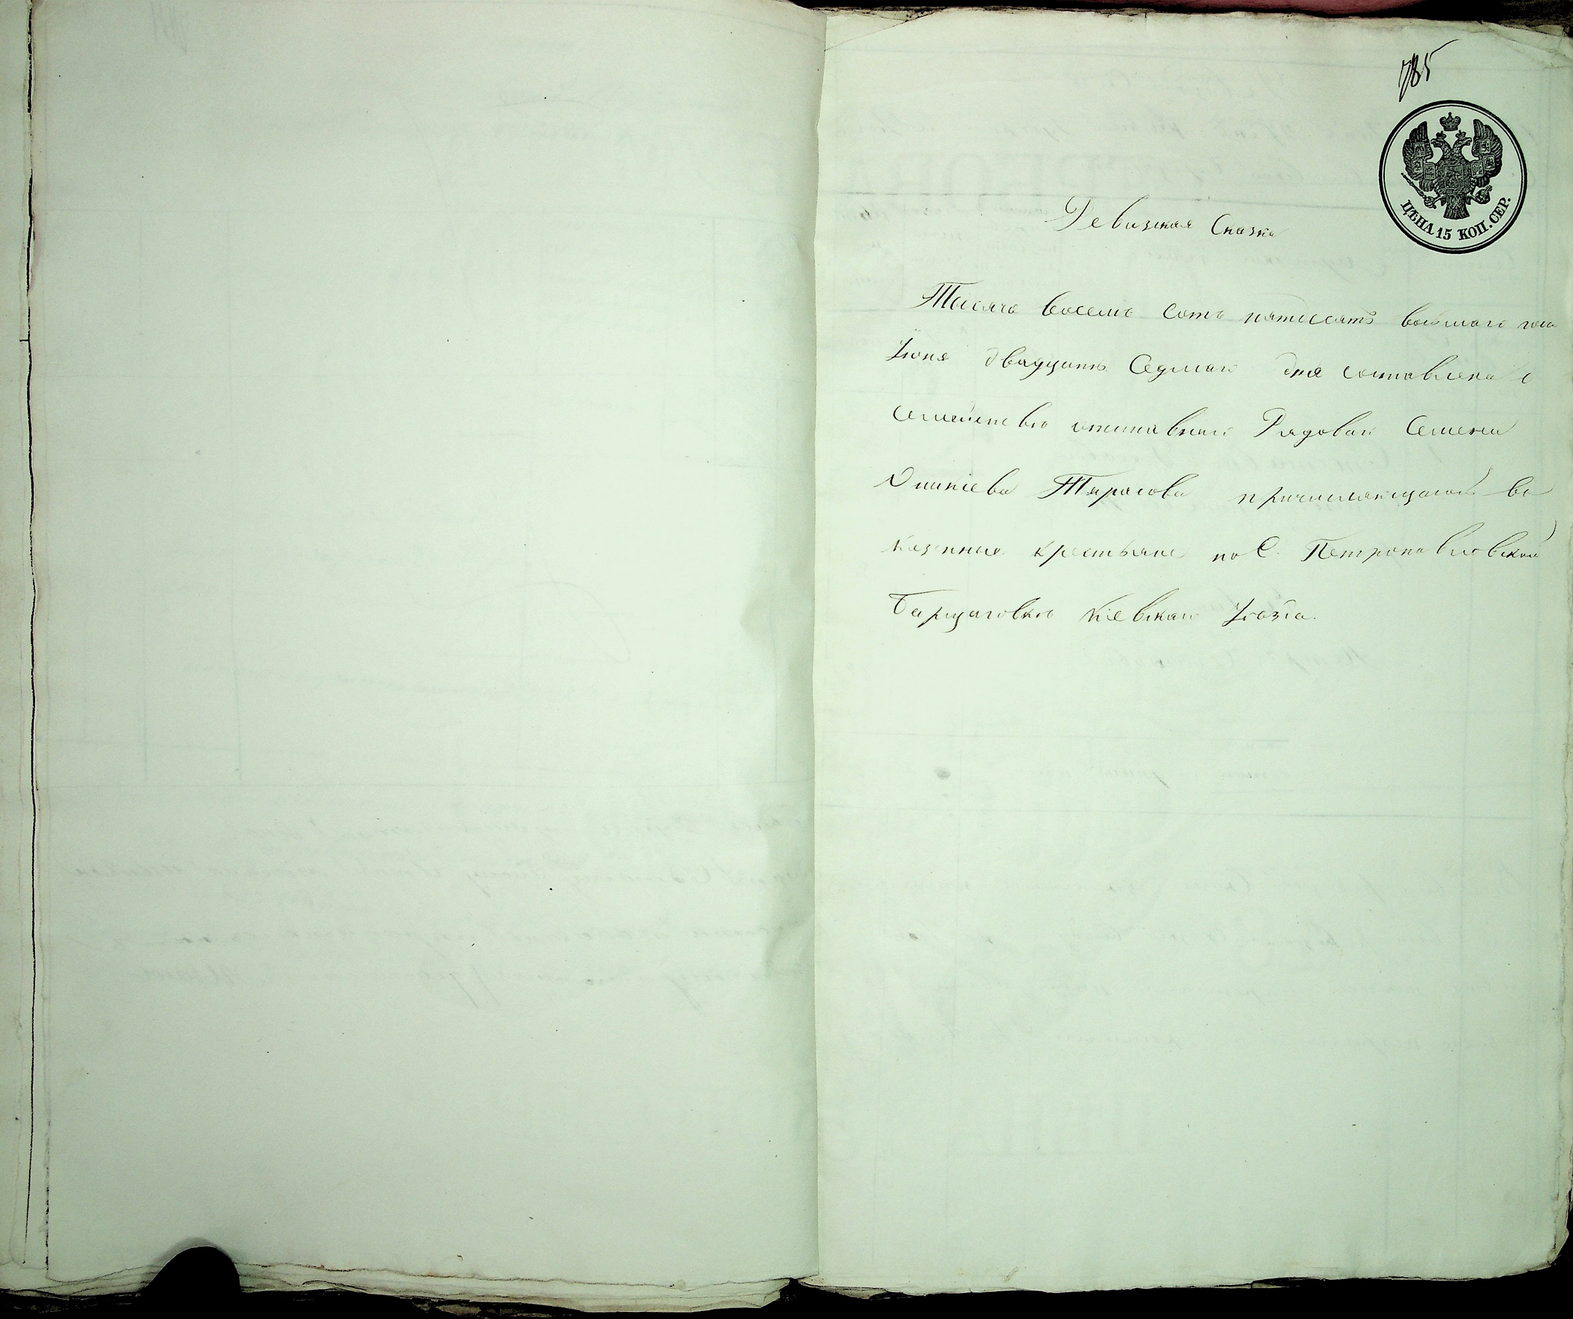 785
ЦѢНА 15 КОП. СЕР.
Ревизская Сказка
Тысяча восемь сотъ пятдесятъ восьмаго года
Іюня двадцать Седмаго дня составлена о
семействѣ отставнаго Рядоваго Семена
Тарасова причисляющагося въ
казенные крестьяне по С. Петропавловской
Борщаговкѣ Кіевскаго Уѣзда.